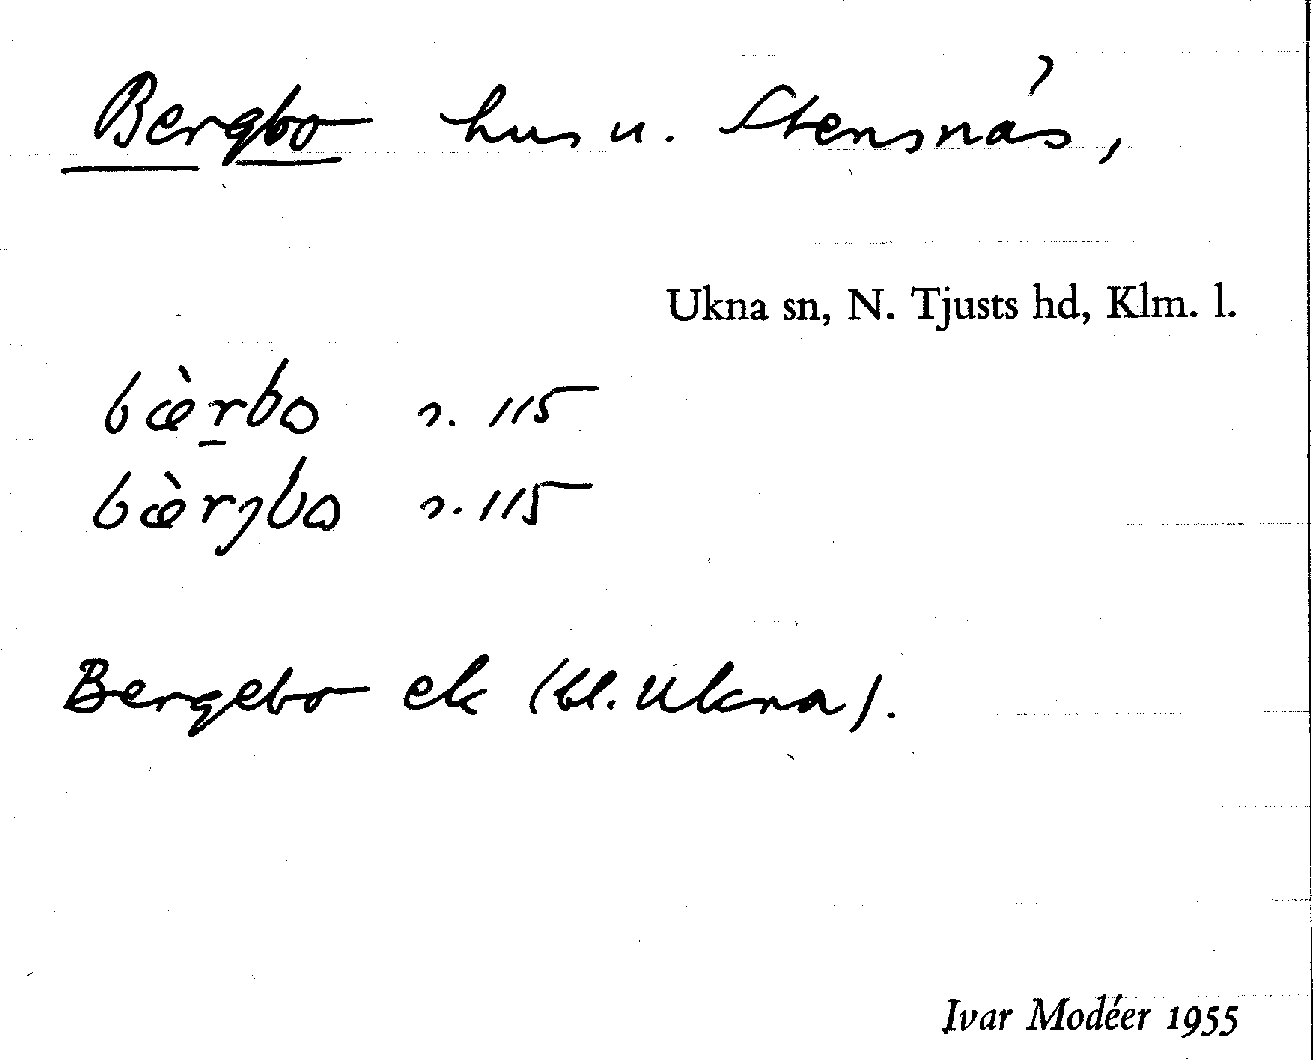 Bergbo hus u. Stensnäs,
Ukna sn, N. Tjusts hd, Klm. l.
bæ̀r̠bo s. 115
bæ̀rȷbo s. 115
Bergebo ek (bl. Ukna).
Ivar Modéer 1955